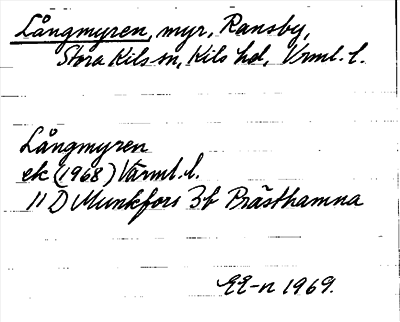 Långmyren, myr, Ransby,
Stora Kils sn, Kils hd, Vrml. l.
Långmyren
ek (1968) Värml. l.
11 D Munkfors 3f Prästhamna
EE-n 1969.